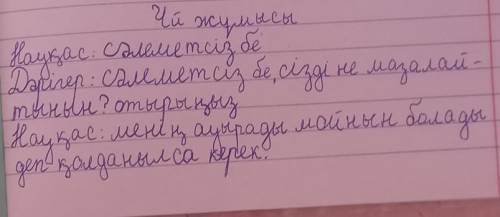 Үй жұмысы
Науқас: сәлеметсіз бе
Дәрігер: сәлеметсіз бе, сізді не мазалай-
тынын? отырыңыз
Науқас: менің ауырады мойнын болады
деп қолданылса керек.